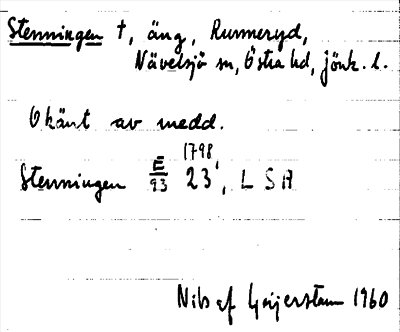 Stenningen †, äng, Runneryd,
Nävelsjö sn, Östra hd, Jönk. l.
Okänt av medd.
Stenningen E/93 1798, 23, L S A
Nils af Geijerstam 1960